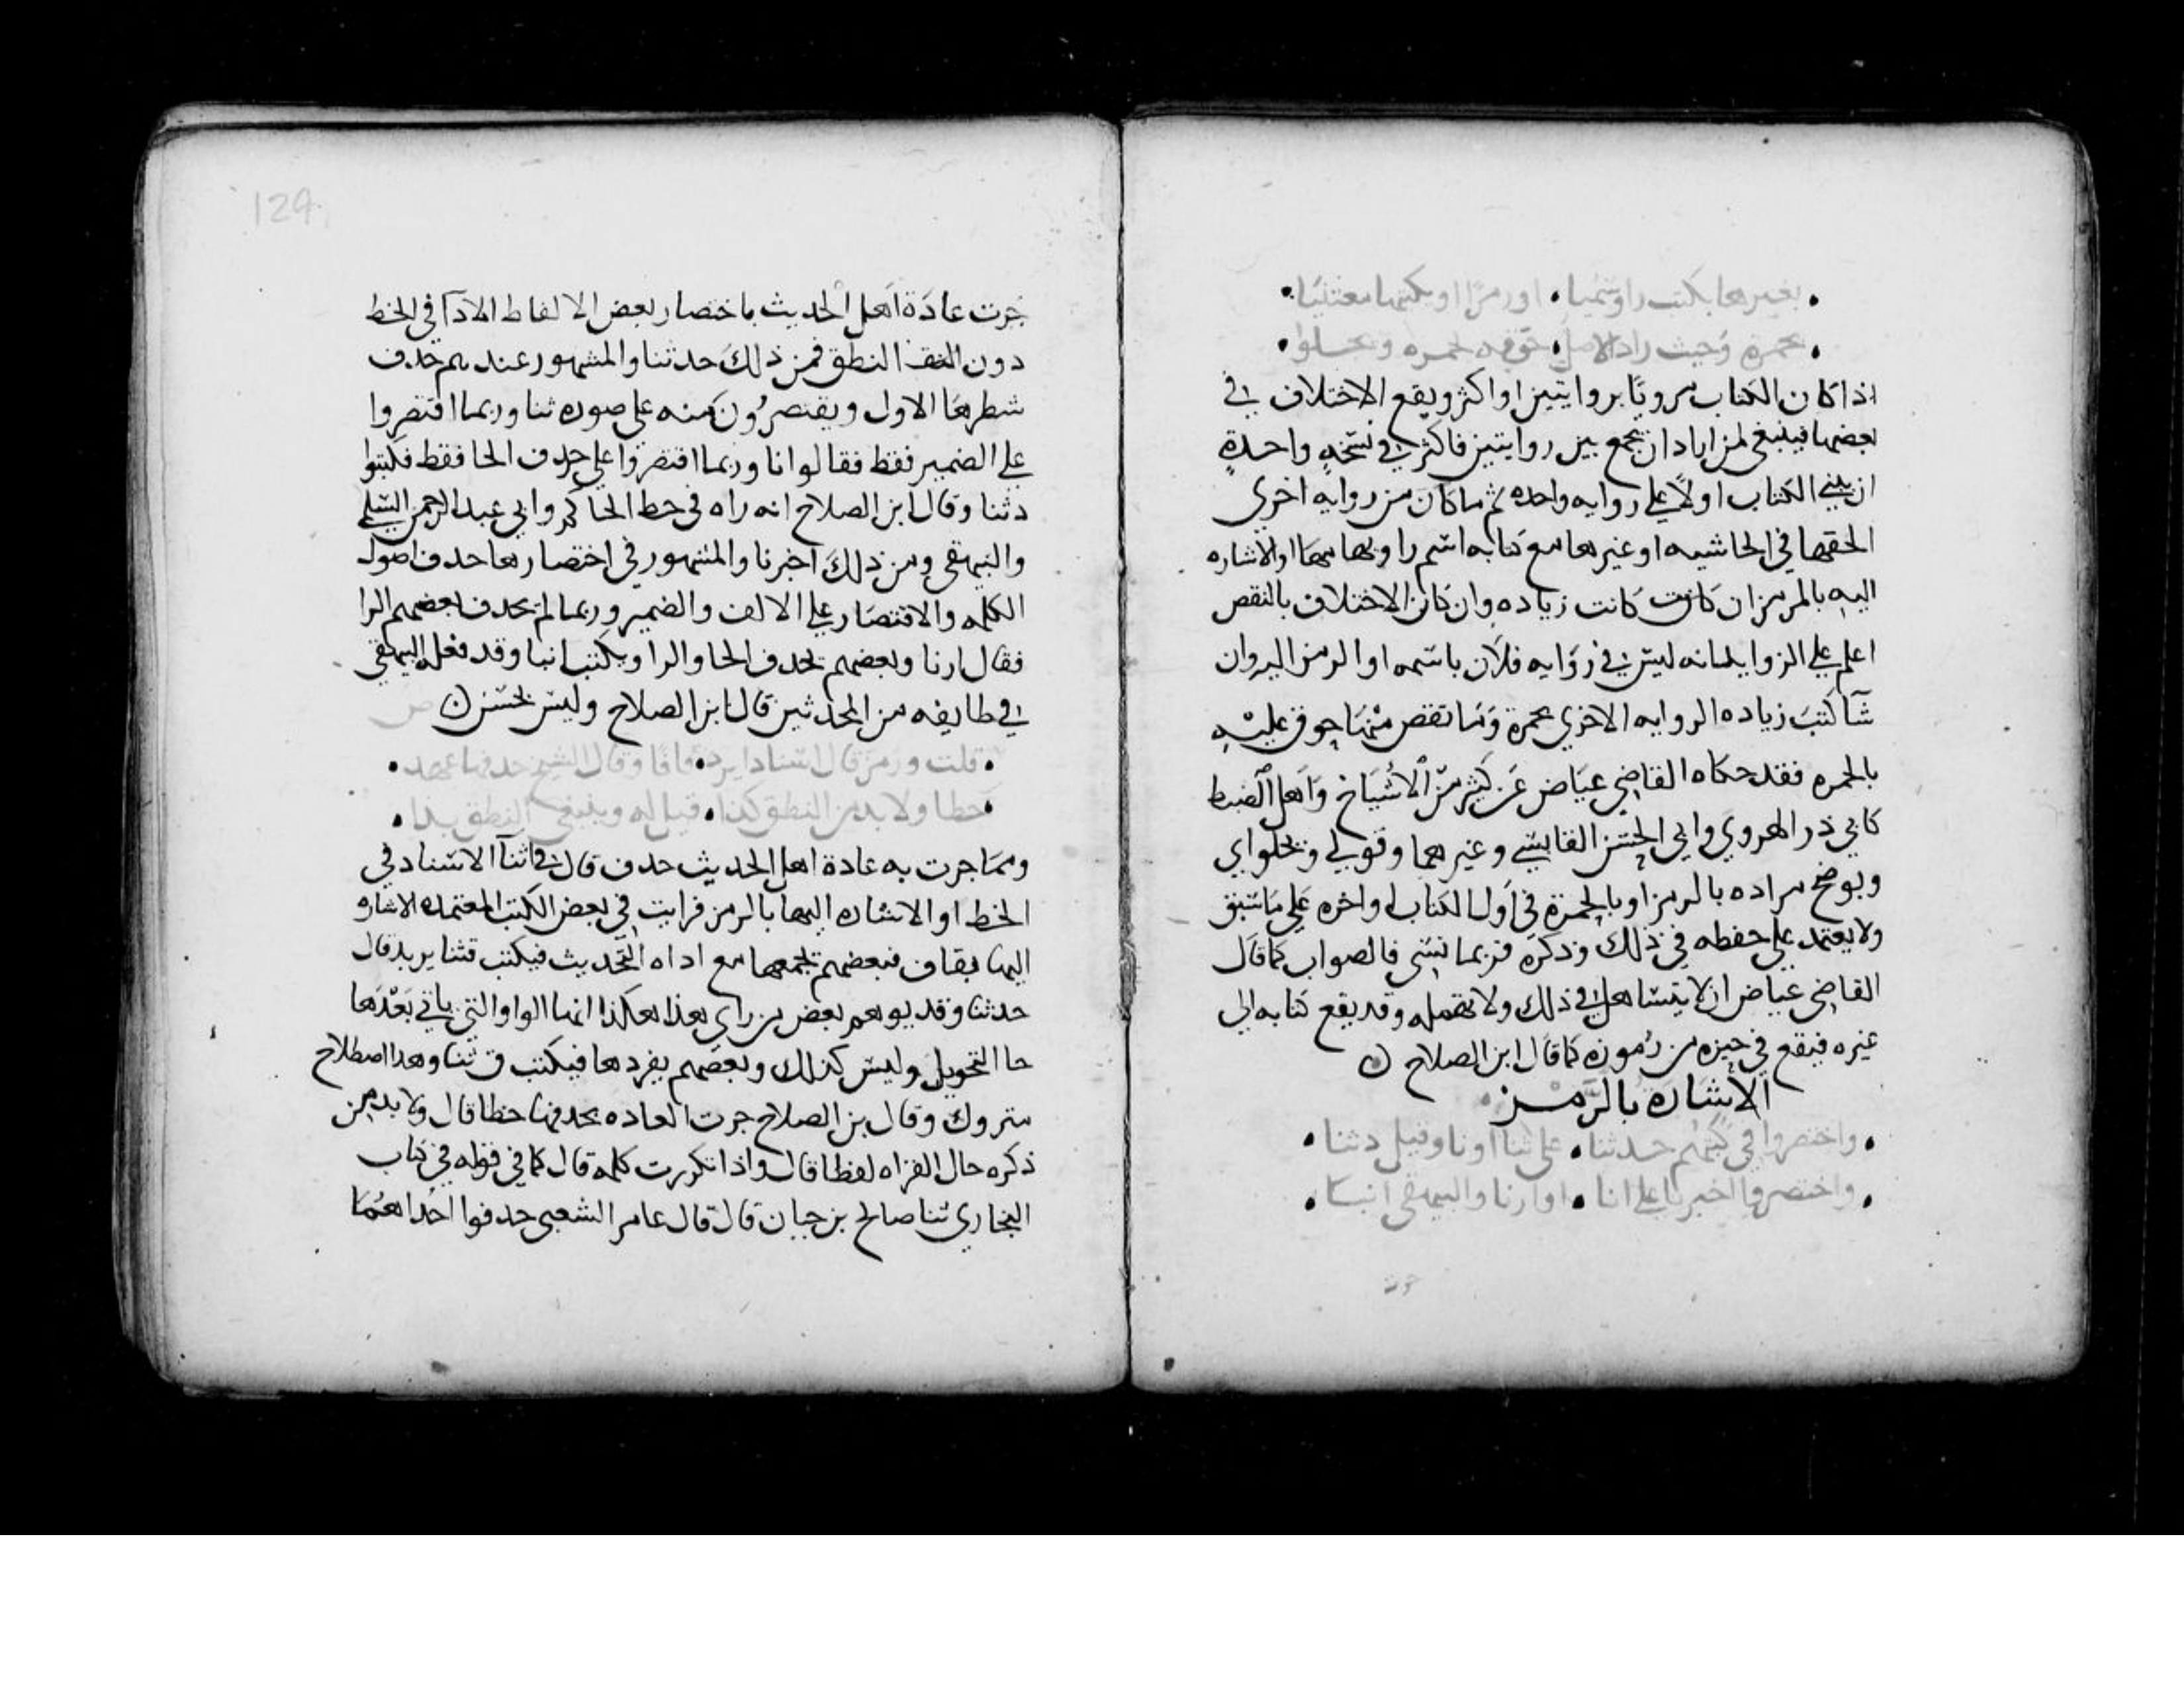 بغيرها بكتب راو سميا . او رمزا او يكتبها معتنيا
بحمرة وحيث زاد الاصل . حوقه بحمره ويجلوا
اذا كان الكتاب مرويا بروايتين او اكثر ويقع الاختلاف في
بعضها فينبغي لمن اراد ان يجمع بين روايتين فاكثر في نسخة واحدة
ان يبني الكتاب اولا على روايه واحده ثم ما كان من روايه اخرى
الحقها في الحاشيه او غيرها مع كتابه اسم راويها معها او الاشاره
اليه بالرمز ان كانت كانت زياده وان كان الاختلاف بالنقص
اعلم على الزوايد انه ليس في روايه فلان باسمه او الرمز اليه وان
شآ كتب زياده الروايه الاخرى بحمرة وما نقص منها حوق عليه
بالحمره فقد حكاه القاضي عياض عن كثير من الاشياخ واهل الضبط
كابي ذر الهروي وابي الحسن القابسي وغيرهما وقولي ويجلو اي
ويوضح مراده بالرمز او بالحمرة في اول الكتاب او اخره على ما سبق
ولا يعتمد على حفظه في ذلك وذكره فربما نسي فالصواب كما قال
القاضي عياض ان لا يتساهل في ذلك ولا يهمله وقد يقع كتابه الى
غيره فيقع في حيرة من رموزه كما قال ابن الصلاح ن
الاشارة بالرمز
واختصروا في كتبهم حدثنا . على ثنا او نا وقيل دثنا
واختصروا اخبرنا على انا . او ارنا والبيهقي ابنا
جرت
129
جرت عادة اهل الحديث باختصار بعض الالفاظ الادآ في الخط
دون النطق فمن ذلك حدثنا والمشهور عندهم حذف
شطرها الاول ويقتصرون منه على صوره ثنا وربما اقتصروا
على الضمير فقط فقالوا نا وربما اقتصروا على حذف الحا فقط فكتبوا
دثنا وقال ابن الصلاح انه راه في خط الحاكم وابي عبد الرحمن السلمي
والبيهقي ومن ذلك اخبرنا والمشهور في اختصارها حذف اصول
الكلمه والاقتصار على الالف والضمير وربما لم يحذف بعضهم الرا
فقال ارنا وبعضهم يحذف الحا والرا ويكتب ابنا وقد فعله البيهقي
في طايفه من المحدثين قال ابن الصلاح وليس بحسن ن
قلت ورمز قال اسنادا يرد . قافا وقال الشيخ حذفها عهد
خطا ولا بد من النطق كذا . قيل له وينبغي النطق بذا
ومما جرت به عادة اهل الحديث حذف قال في اثنآ الاسناد في
الخط او الاشاره اليها بالرمز فرايت في بعض الكتب المعتمده الاشاره
اليها بقاف فبعضهم يجمعها مع اداه التحديث فيكتب قثنا يريد قال
حدثنا وقد يوهم بعض من راى هذا هكذا انها الواو التي ياتي بعدها
حا التحويل وليس كذلك وبعضهم يفردها فيكتب ق ثنا وهذا اصطلاح
متروك وقال بن الصلاح جرت العاده بحذفها خطا قال ولا بد من
ذكره حال القراه لفظا قال واذا تكررت كلمه قال كما في قوله في كتاب
البخاري ثنا صالح بن حيان قال قال عامر الشعبي حذفوا احداهما